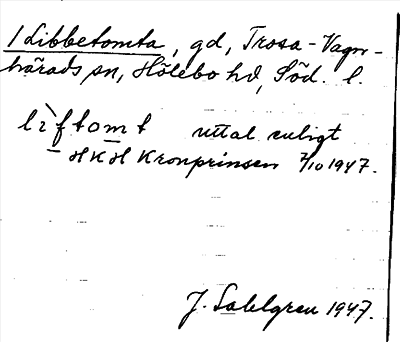 1 Libbetomta, gd, Trosa-Vagn-
härads sn, Hölebo hd, Söd. l.
lìftomt uttal enligt
HKH Kronprinsen 7/10 1947.
J. Sahlgren 1947.